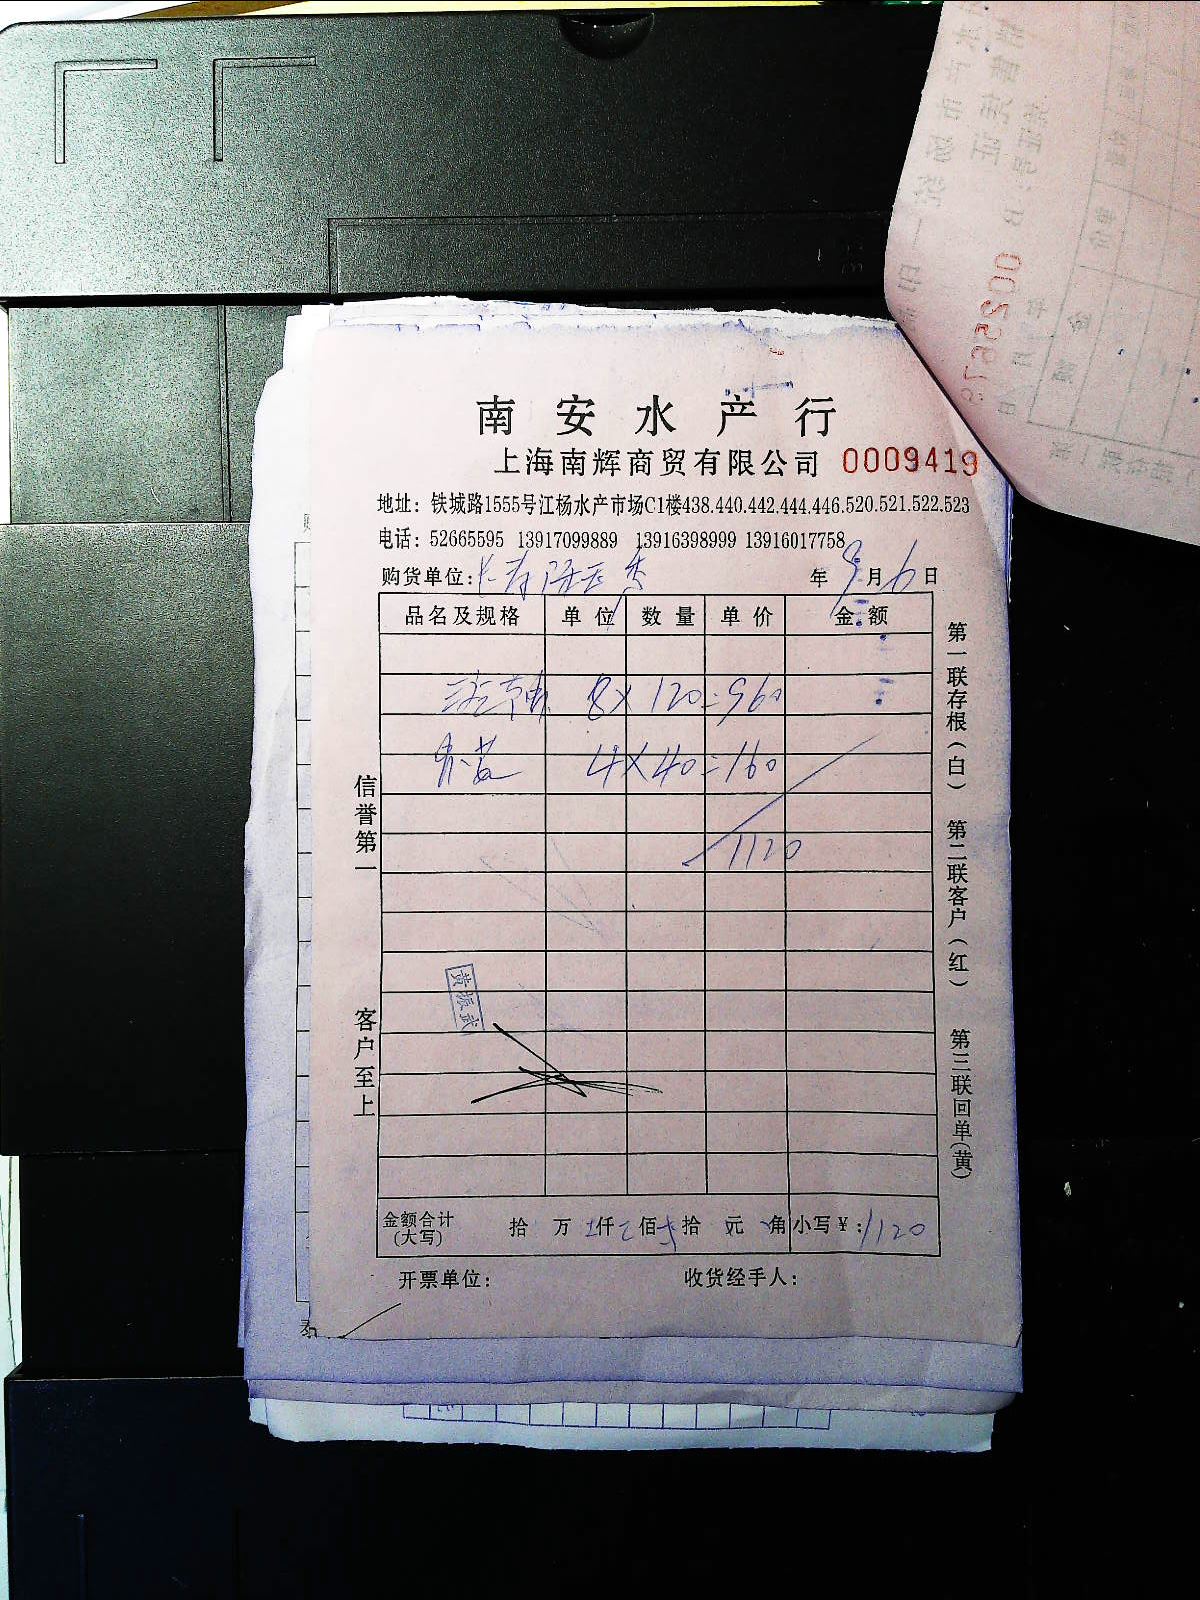 南安水产行
上海南辉商贸有限公司 0009419
地址：铁城路1555号江杨水产市场C1楼438.440.442.444.446.520.521.522.523
电话：52665595 13917099889 13916398999 13916017758
购货单位：
年9月6日
品名及规格 单位 数量 单价 金额
8×120=960
4×40=160
1120
信誉第一
客户至上
黄振武
第一联存根（白）
第二联客户（红）
第三联回单（黄）
金额合计（大写） 拾 万 仟 佰 拾 元 角 小写￥：1120
开票单位：
收货经手人：